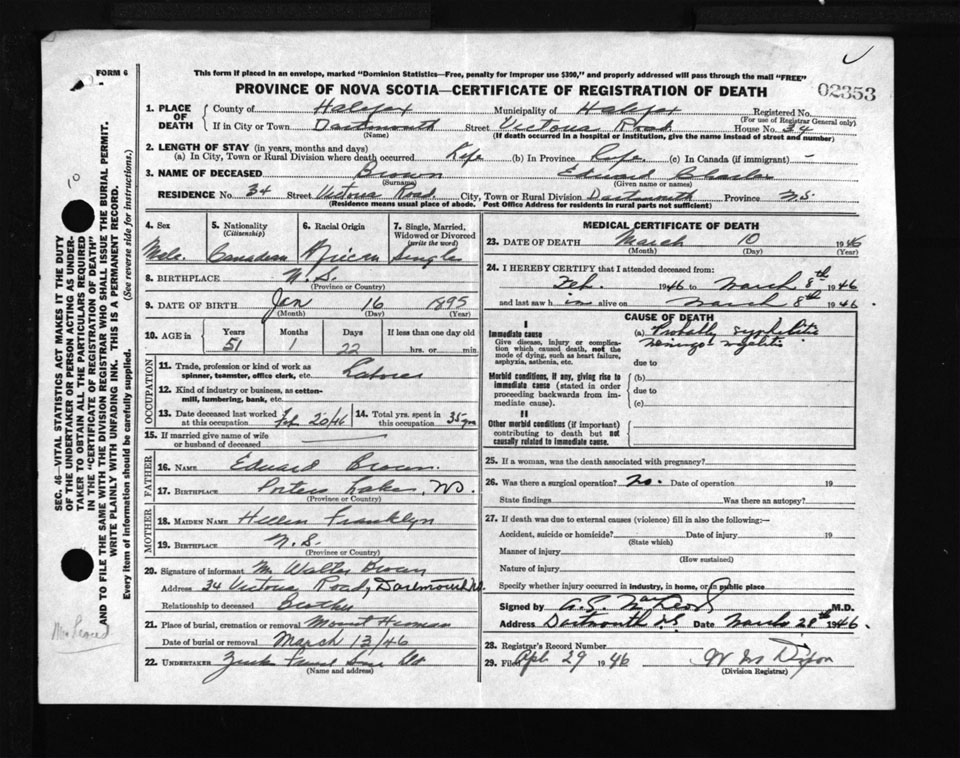 FORM 6
This form if placed in an envelope, marked "Dominion Statistics—Free, penalty for improper use $300," and properly addressed will pass through the mail "FREE"
PROVINCE OF NOVA SCOTIA—CERTIFICATE OF REGISTRATION OF DEATH
02353
1. PLACE OF DEATH County of Halifax Municipality of Halifax Registered No.
(For use of Registrar General only)
If in City or Town Dartmouth Street Victoria Road House No. 34
(Name) (If death occurred in a hospital or institution, give the name instead of street and number)
2. LENGTH OF STAY (in years, months and days)
(a) In City, Town or Rural Division where death occurred Life (b) In Province Life (c) In Canada (if immigrant) —
3. NAME OF DECEASED Brown Edward Charles
(Surname) (Given name or names)
RESIDENCE No. 34 Street Victoria Road City, Town or Rural Division Dartmouth Province N.S.
(Residence means usual place of abode. Post Office Address for residents in rural parts not sufficient)
4. Sex 5. Nationality (Citizenship) 6. Racial Origin 7. Single, Married, Widowed or Divorced (write the word)
Male. Canadian African Single
8. BIRTHPLACE N.S.
(Province or Country)
9. DATE OF BIRTH Jan 16 1895
(Month) (Day) (Year)
10. AGE in Years Months Days If less than one day old
51 1 22 hrs. or min.
OCCUPATION
11. Trade, profession or kind of work as spinner, teamster, office clerk, etc. Laborer
12. Kind of industry or business, as cotton-mill, lumbering, bank, etc.
13. Date deceased last worked at this occupation Feb 20/46 14. Total yrs. spent in this occupation 35 yrs
15. If married give name of wife or husband of deceased
FATHER
16. NAME Edward Brown.
17. BIRTHPLACE Porters Lake, N.S.
(Province or Country)
MOTHER
18. MAIDEN NAME Hellen Franklyn
19. BIRTHPLACE N.S.
(Province or Country)
20. Signature of informant Mr. Walter Brown
Address 34 Victoria Road, Dartmouth N.S.
Relationship to deceased Brother
21. Place of burial, cremation or removal Mount Herman
Date of burial or removal March 13/46
22. UNDERTAKER Zinks Funeral Ltd
(Name and address)
MEDICAL CERTIFICATE OF DEATH
23. DATE OF DEATH March 10 1946
(Month) (Day) (Year)
24. I HEREBY CERTIFY that I attended deceased from:
Feb. 1946 to March 8th 1946
and last saw him alive on March 8th 1946.
CAUSE OF DEATH
I
Immediate cause (a) Probably syphilitic
Give disease, injury or complication which caused death, not the mode of dying, such as heart failure, asphyxia, asthenia, etc. meningo myelitis
due to
Morbid conditions, if any, giving rise to immediate cause (stated in order proceeding backwards from immediate cause). (b)
due to
(c)
II
Other morbid conditions (if important) contributing to death but not causally related to immediate cause.
25. If a woman, was the death associated with pregnancy?
26. Was there a surgical operation? No. Date of operation 19
State findings Was there an autopsy?
27. If death was due to external causes (violence) fill in also the following:—
Accident, suicide or homicide? Date of injury 19
(State which)
Manner of injury
(How sustained)
Nature of injury
Specify whether injury occurred in industry, in home, or in public place
Signed by A.G. M.D.
Address Dartmouth N.S. Date March 28th 1946.
28. Registrar's Record Number
29. Filed Apl. 29 1946 W M Dixon
(Division Registrar)
SEC. 46—VITAL STATISTICS ACT MAKES IT THE DUTY
OF THE UNDERTAKER OR PERSON ACTING AS UNDER-
TAKER TO OBTAIN ALL THE PARTICULARS REQUIRED
IN THE "CERTIFICATE OF REGISTRATION OF DEATH"
AND TO FILE THE SAME WITH THE DIVISION REGISTRAR WHO SHALL ISSUE THE BURIAL PERMIT.
WRITE PLAINLY WITH UNFADING INK. THIS IS A PERMANENT RECORD.
Every item of information should be carefully supplied. (See reverse side for instructions.)
10